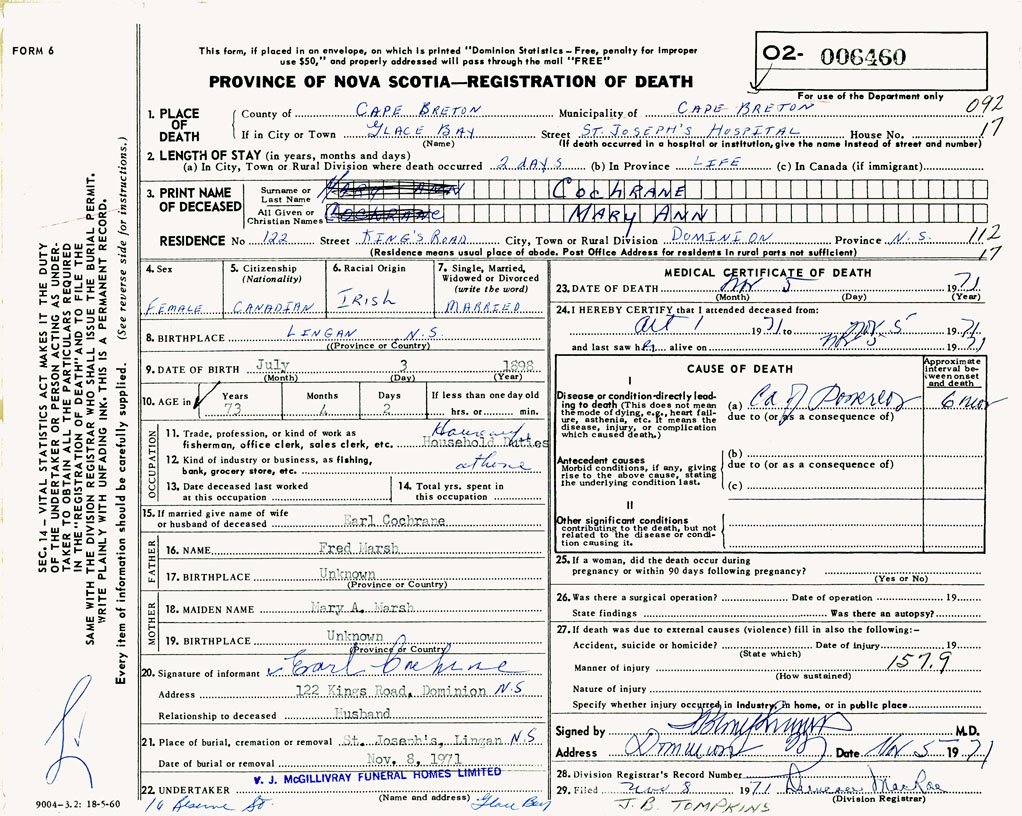 FORM 6
This form, if placed in an envelope, on which is printed "Dominion Statistics – Free, penalty for improper
use $50," and properly addressed will pass through the mail "FREE"
02- 006460
PROVINCE OF NOVA SCOTIA—REGISTRATION OF DEATH
For use of the Department only
092
17
1. PLACE OF DEATH
County of CAPE BRETON Municipality of CAPE BRETON
If in City or Town GLACE BAY Street ST. JOSEPH'S HOSPITAL House No.
(Name) (If death occurred in a hospital or institution, give the name instead of street and number)
2. LENGTH OF STAY (in years, months and days)
(a) In City, Town or Rural Division where death occurred 2 days (b) In Province LIFE (c) In Canada (if immigrant)
3. PRINT NAME OF DECEASED
Surname or Last Name MARY ANN COCHRANE
All Given or Christian Names COCHRANE MARY ANN
RESIDENCE No 122 Street KING'S ROAD City, Town or Rural Division DOMINION Province N.S. 112
(Residence means usual place of abode. Post Office Address for residents in rural parts not sufficient) 17
4. Sex FEMALE
5. Citizenship (Nationality) CANADIAN
6. Racial Origin IRISH
7. Single, Married, Widowed or Divorced (write the word) MARRIED
8. BIRTHPLACE LINGAN N.S.
(Province or Country)
9. DATE OF BIRTH July 3 1898
(Month) (Day) (Year)
10. AGE in Years 73 Months 4 Days 2 If less than one day old hrs. or min.
OCCUPATION
11. Trade, profession, or kind of work as
fisherman, office clerk, sales clerk, etc. Household Duties
12. Kind of industry or business, as fishing,
bank, grocery store, etc. at home
13. Date deceased last worked
at this occupation
14. Total yrs. spent in
this occupation
15. If married give name of wife
or husband of deceased Earl Cochrane
FATHER
16. NAME Fred Marsh
17. BIRTHPLACE Unknown
(Province or Country)
MOTHER
18. MAIDEN NAME Mary A. Marsh
19. BIRTHPLACE Unknown
(Province or Country)
20. Signature of informant Earl Cochrane
Address 122 Kings Road, Dominion N.S
Relationship to deceased Husband
21. Place of burial, cremation or removal St. Joseph's, Lingan N.S
Date of burial or removal Nov. 8, 1971
V. J. McGILLIVRAY FUNERAL HOMES LIMITED
22. UNDERTAKER
(Name and address)
16 Reserve St. Glace Bay
MEDICAL CERTIFICATE OF DEATH
23. DATE OF DEATH Nov 5 1971
(Month) (Day) (Year)
24. I HEREBY CERTIFY that I attended deceased from:
Oct 1 1971 to Nov 5 1971
and last saw her alive on Nov 5 1971
CAUSE OF DEATH
Approximate interval between onset and death
I
Disease or condition directly leading to death (This does not mean
the mode of dying, e.g., heart failure, asthenia, etc. It means the
disease, injury, or complication
which caused death.)
(a) Ca of Pancreas 6 mos
due to (or as a consequence of)
Antecedent causes
Morbid conditions, if any, giving
rise to the above cause, stating
the underlying condition last.
(b)
due to (or as a consequence of)
(c)
II
Other significant conditions
contributing to the death, but not
related to the disease or condition causing it.
25. If a woman, did the death occur during
pregnancy or within 90 days following pregnancy?
(Yes or No)
26. Was there a surgical operation? Date of operation 19
State findings Was there an autopsy?
27. If death was due to external causes (violence) fill in also the following:–
Accident, suicide or homicide? Date of injury 19
(State which)
Manner of injury 157.9
(How sustained)
Nature of injury
Specify whether injury occurred in industry, in home, or in public place
Signed by M.D.
Address Dominion Date Nov 5 1971
28. Division Registrar's Record Number
29. Filed Nov 8 1971 Ebenezer MacRae
(Division Registrar)
J. B. TOMPKINS
SEC. 14 – VITAL STATISTICS ACT MAKES IT THE DUTY
OF THE UNDERTAKER OR PERSON ACTING AS UNDERTAKER TO OBTAIN ALL THE PARTICULARS REQUIRED
IN THE "REGISTRATION OF DEATH" AND TO FILE THE
SAME WITH THE DIVISION REGISTRAR WHO SHALL ISSUE THE BURIAL PERMIT.
WRITE PLAINLY WITH UNFADING INK. THIS IS A PERMANENT RECORD.
Every item of information should be carefully supplied. (See reverse side for instructions.)
9004–3.2: 18-5-60